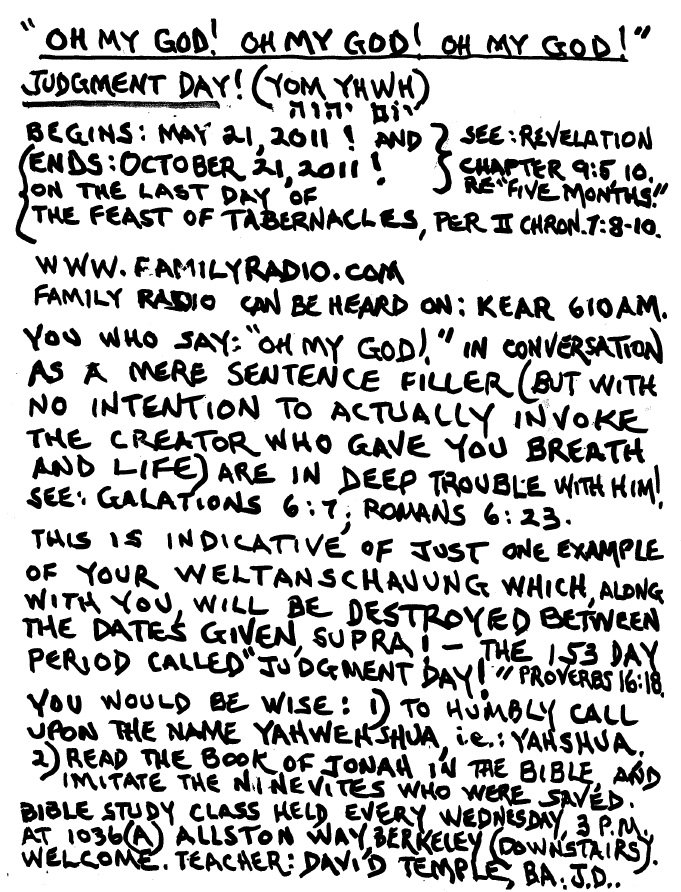 "OH MY GOD! OH MY GOD! OH MY GOD!"
JUDGMENT DAY! (YOM YHWH)
יום יהוה
BEGINS: MAY 21, 2011! AND } SEE: REVELATION
ENDS: OCTOBER 21, 2011! CHAPTER 9:5, 10.
ON THE LAST DAY OF RE "FIVE MONTHS."
THE FEAST OF TABERNACLES, PER II CHRON. 7:8-10.
WWW.FAMILYRADIO.COM
FAMILY RADIO CAN BE HEARD ON: KEAR 610 AM.
YOU WHO SAY: "OH MY GOD!" IN CONVERSATION
AS A MERE SENTENCE FILLER (BUT WITH
NO INTENTION TO ACTUALLY INVOKE
THE CREATOR WHO GAVE YOU BREATH
AND LIFE) ARE IN DEEP TROUBLE WITH HIM!
SEE: GALATIONS 6:7; ROMANS 6:23.
THIS IS INDICATIVE OF JUST ONE EXAMPLE
OF YOUR WELTANSCHAUUNG WHICH, ALONG
WITH YOU, WILL BE DESTROYED BETWEEN
THE DATES GIVEN, SUPRA! — THE 153 DAY
PERIOD CALLED "JUDGMENT DAY!" PROVERBS 16:18.
YOU WOULD BE WISE: 1) TO HUMBLY CALL
UPON THE NAME YAHWEHSHUA, i.e.: YAHSHUA.
2) READ THE BOOK OF JONAH IN THE BIBLE, AND
IMITATE THE NINEVITES WHO WERE SAVED.
BIBLE STUDY CLASS HELD EVERY WEDNESDAY, 3 P.M.
AT 1036(A) ALLSTON WAY, BERKELEY (DOWNSTAIRS).
WELCOME. TEACHER: DAVID TEMPLE, BA. J.D..